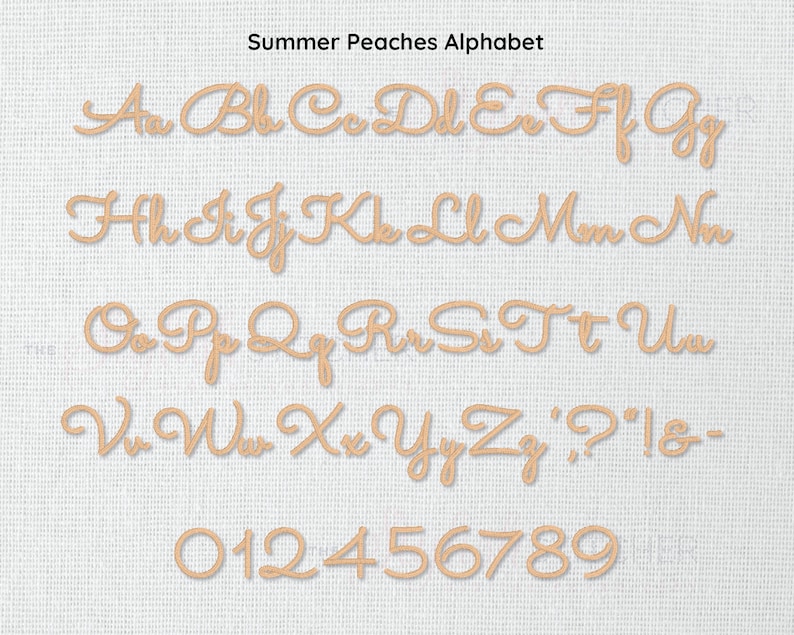 Summer Peaches Alphabet
Aa Bb Cc Dd Ee Ff Gg
Hh Ii Jj Kk Ll Mm Nn
Oo Pp Qq Rr Ss Tt Uu
Vv Ww Xx Yy Zz ' , ? " ! & -
012456789